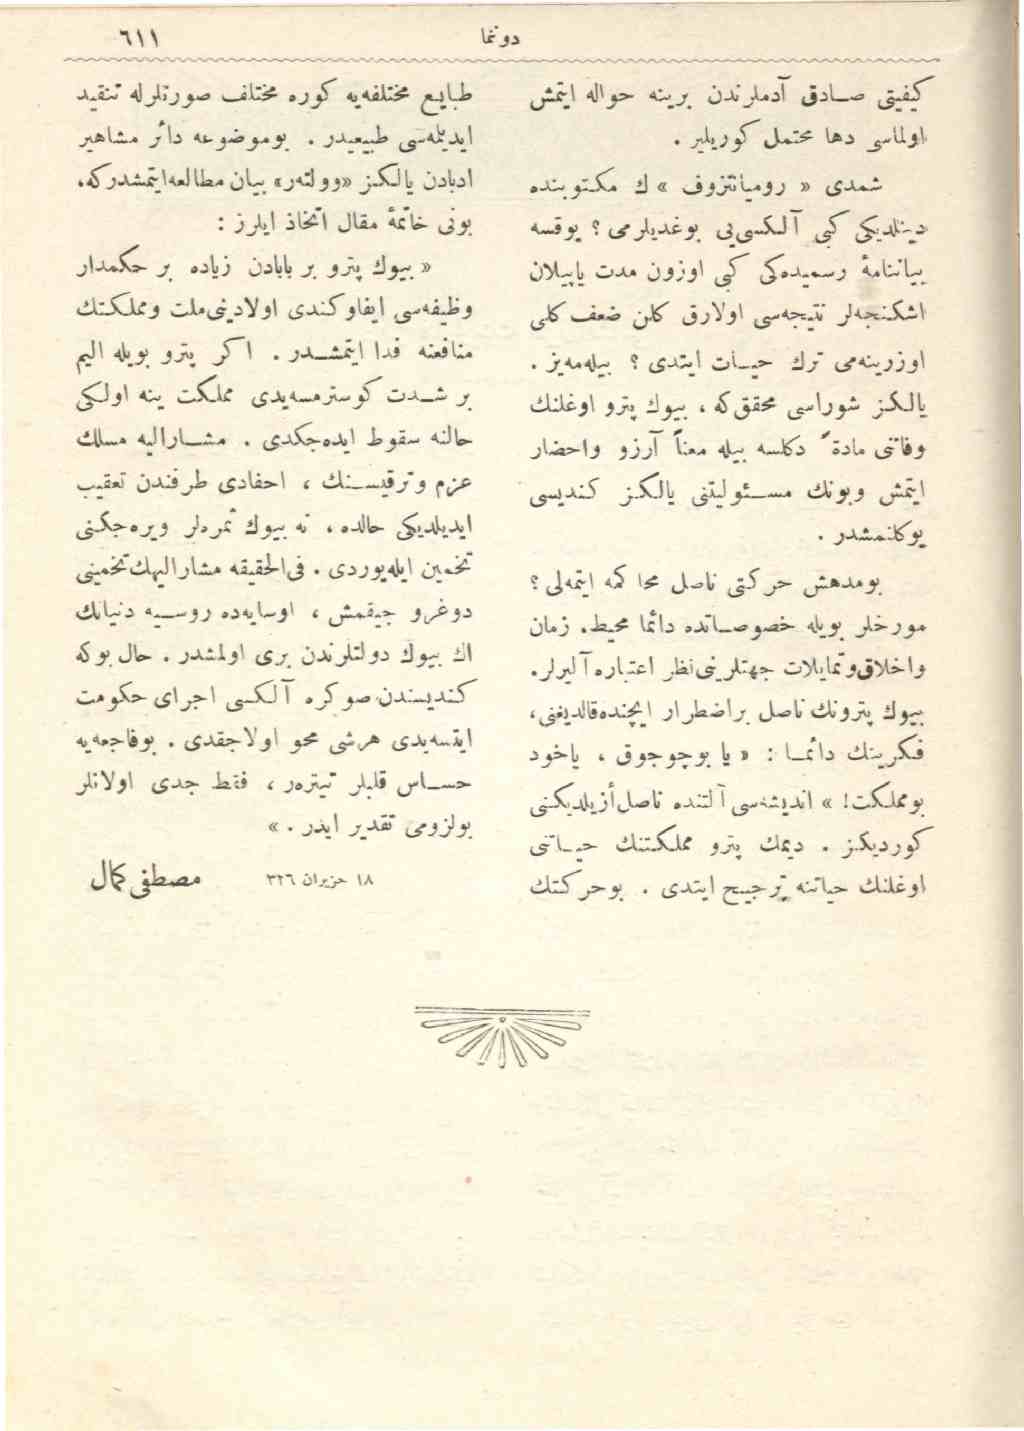 دوننما
٦١١
كیفیتی صـادق آدملرندن برینه حواله ایتمش
اولماسی دها محتمل كوریلیر .
شمدی « رومیانتزوف » ك مكتوبنده
دینلدیكی كبی آلكسی‌یی بوغدیلرمی ؟ یوقسه
بیاننامهٔ رسمیده‌كی كبی اوزون مدت یاپیلان
اشكنجه‌لر نتیجه‌سی اولارق كلن ضعف كلی
اوزرینه‌می ترك حیـات ایتدی ؟ بیله‌مه‌یز .
یالكز شوراسی محقق‌كه ، بیوك پترو اوغلنك
وفاتنی مادةً دكلسه بیله معناً آرزو واحضار
ایتمش وبونك مسـئولیتنی یالكز كندیسی
یوكلنمشدر .
بومدهش حركتی ناصل محاكمه ایتمه‌لی ؟
مورخلر بویله خصوصـاتده دائما محیط. زمان
واخلاق‌وتمایلات جهتلرینی‌نظر اعتباره آلیرلر.
بیوك پترونك ناصل براضطرار ایچنده‌قالدیغنی،
فكرینك دائمـا : « یا بوچوجوق ، یاخود
بومملكت! » اندیشه‌سی آلتنده ناصل‌أزیلدیكنی
كوردیكز . دیمك پترو مملكتنك حیـاتنی
اوغلنك حیاتنه ترجیح ایتدی . بوحركتك
طبایـع مختلفه‌یه كوره مختلف صورتلرله تنقید
ایدیله‌سی طبیعیدر . بوموضوعه دائر مشاهیر
ادبادن یالكز «وولته‌ر» بیان مطالعه‌ایتمشدركه،
بونی خاتمهٔ مقال اتخاذ ایلرز :
« بیوك پترو بر بابادن زیاده بر حكمدار
وظیفه‌سی ایفاوكندی اولادینی‌ملت ومملكتك
منافعنه فدا ایتمشـدر . اكر پترو بویله الیم
بر شـدت كوسترمسه‌یدی مملكت ینه اولكی
حالنه سقوط ایده‌جكدی . مشـارالیه مسلك
عزم وترقیسـنك ، احفادی طرفندن تعقیب
ایدیلدیكی حالده ، نه بیوك ثمره‌لر ویره‌جكنی
تخمین ایله‌یوردی . فی‌الحقیقه مشارالیهك‌تخمینی
دوغرو چیقمش ، اوسایه‌ده روسـیه دنیانك
اك بیوك دولتلرندن بری اولمشدر . حال بوكه
كندیسندن صوكره آلكسی اجرای حكومت
ایتسه‌یدی هرشی محو اولاجقدی . بوفاجعه‌یه
حسـاس قلبلر تیتره‌ر ، فقط جدی اولانلر
بولزومی تقدیر ایدر . »
١٨ حزیران ٣٢٦ مصطفی كمال